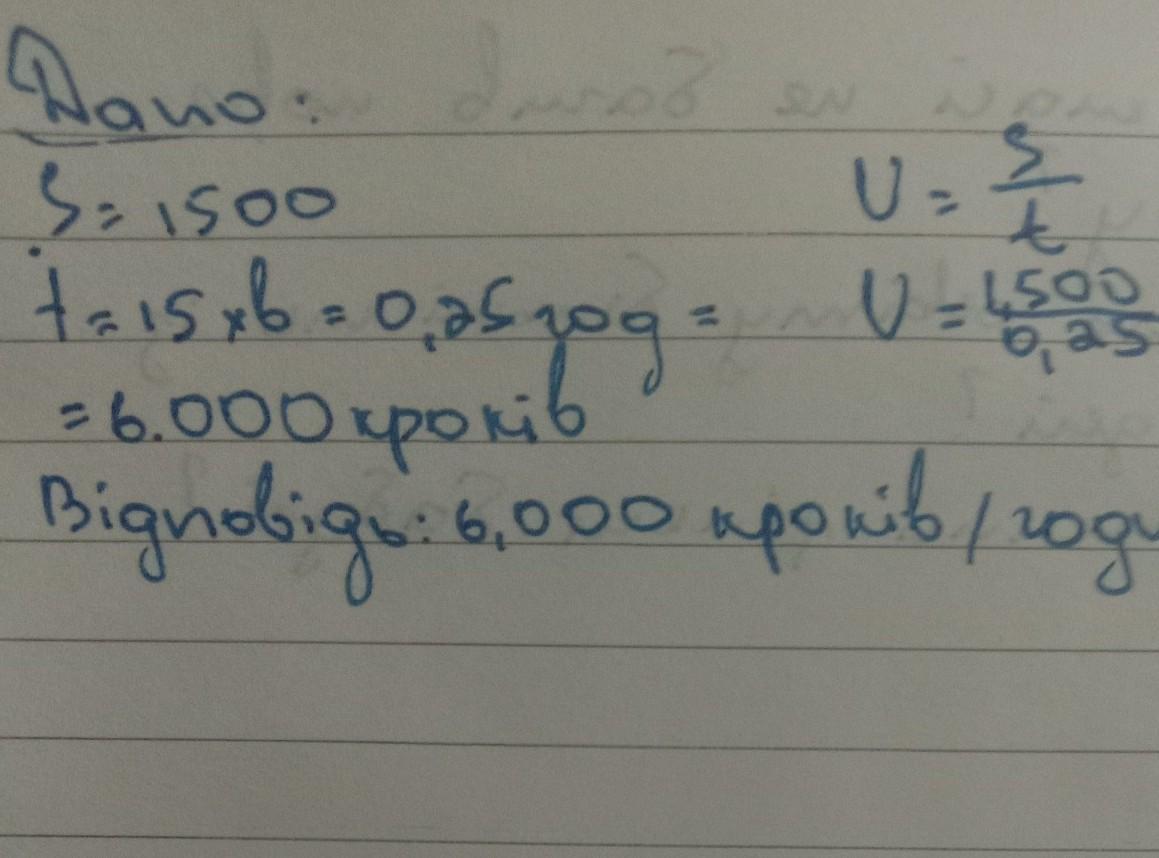 Дано:
S = 1500 U = S/t
t = 15 хв = 0,25 год = U = 1,500/0,25
= 6.000 кроків
Відповідь: 6,000 кроків / год